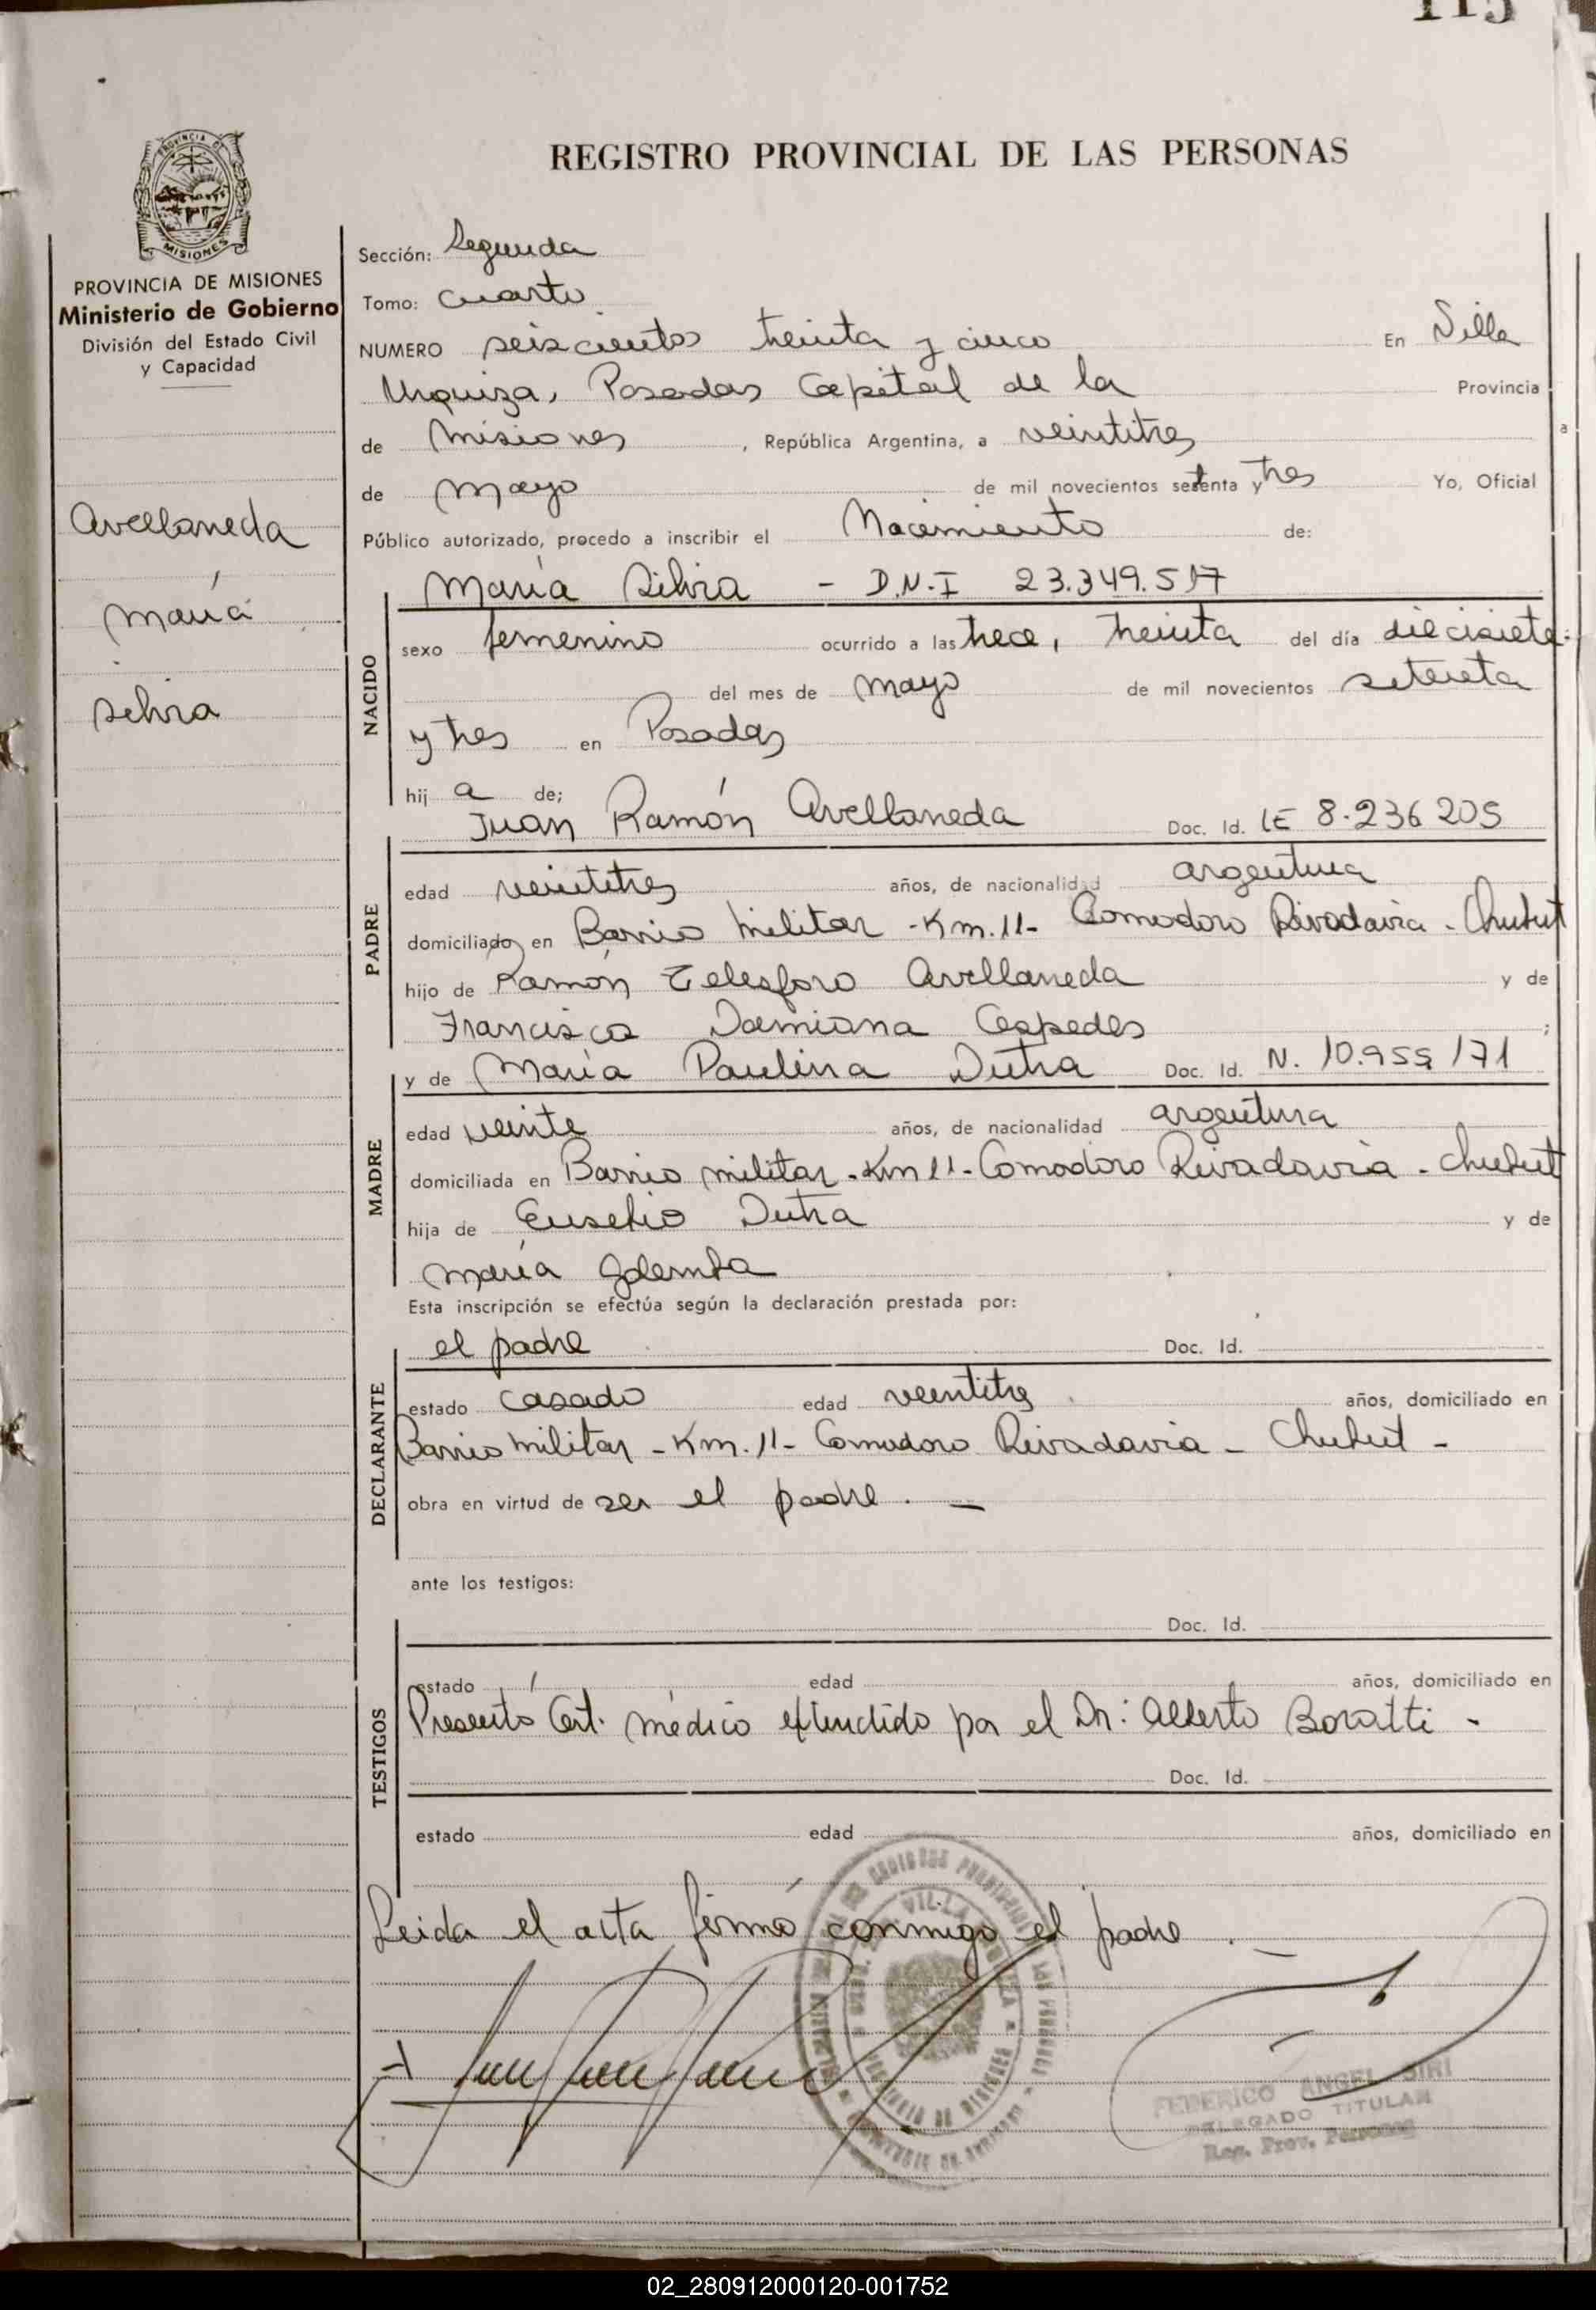 115
REGISTRO PROVINCIAL DE LAS PERSONAS
PROVINCIA DE MISIONES
Ministerio de Gobierno
División del Estado Civil
y Capacidad
Avellaneda
María
Silvia
Sección: Segunda
Tomo: Cuarto
NUMERO seiscientos treinta y cinco En Villa
Urquiza, Posadas Capital de la Provincia
de Misiones, República Argentina, a veintitres
de Mayo de mil novecientos setenta y tres Yo, Oficial
Público autorizado, procedo a inscribir el Nacimiento de:
NACIDO
María Silvia - D.N.I 23.349.517
sexo femenino ocurrido a las trece, treinta del día diecisiete
del mes de Mayo de mil novecientos setenta
y tres en Posadas
hij a de;
PADRE
Juan Ramón Avellaneda Doc. Id. LE 8.236 205
edad veintitres años, de nacionalidad argentina
domiciliado en Barrio Militar - Km. 11 - Comodoro Rivadavia - Chubut
hijo de Ramón Telesforo Avellaneda y de
Francisca Damiana Cespedes ;
MADRE
y de María Paulina Dutra Doc. Id. N. 10.959 171
edad veinte años, de nacionalidad argentina
domiciliada en Barrio militar - Km 11 - Comodoro Rivadavia - Chubut
hija de Eusebio Dutra y de
María
Esta inscripción se efectúa según la declaración prestada por:
DECLARANTE
el padre Doc. Id.
estado casado edad veintitres años, domiciliado en
Barrio Militar - Km. 11 - Comodoro Rivadavia - Chubut -
obra en virtud de ser el padre. -
ante los testigos:
TESTIGOS
Doc. Id.
estado edad años, domiciliado en
Presentó Cert. médico extendido por el Dr: Alberto Boratti -
Doc. Id.
estado edad años, domiciliado en
Leida el acta firmó conmigo el padre. -
FEDERICO ANGEL SIRI
DELEGADO TITULAR
Reg. Prov. Personas
02_280912000120-001752